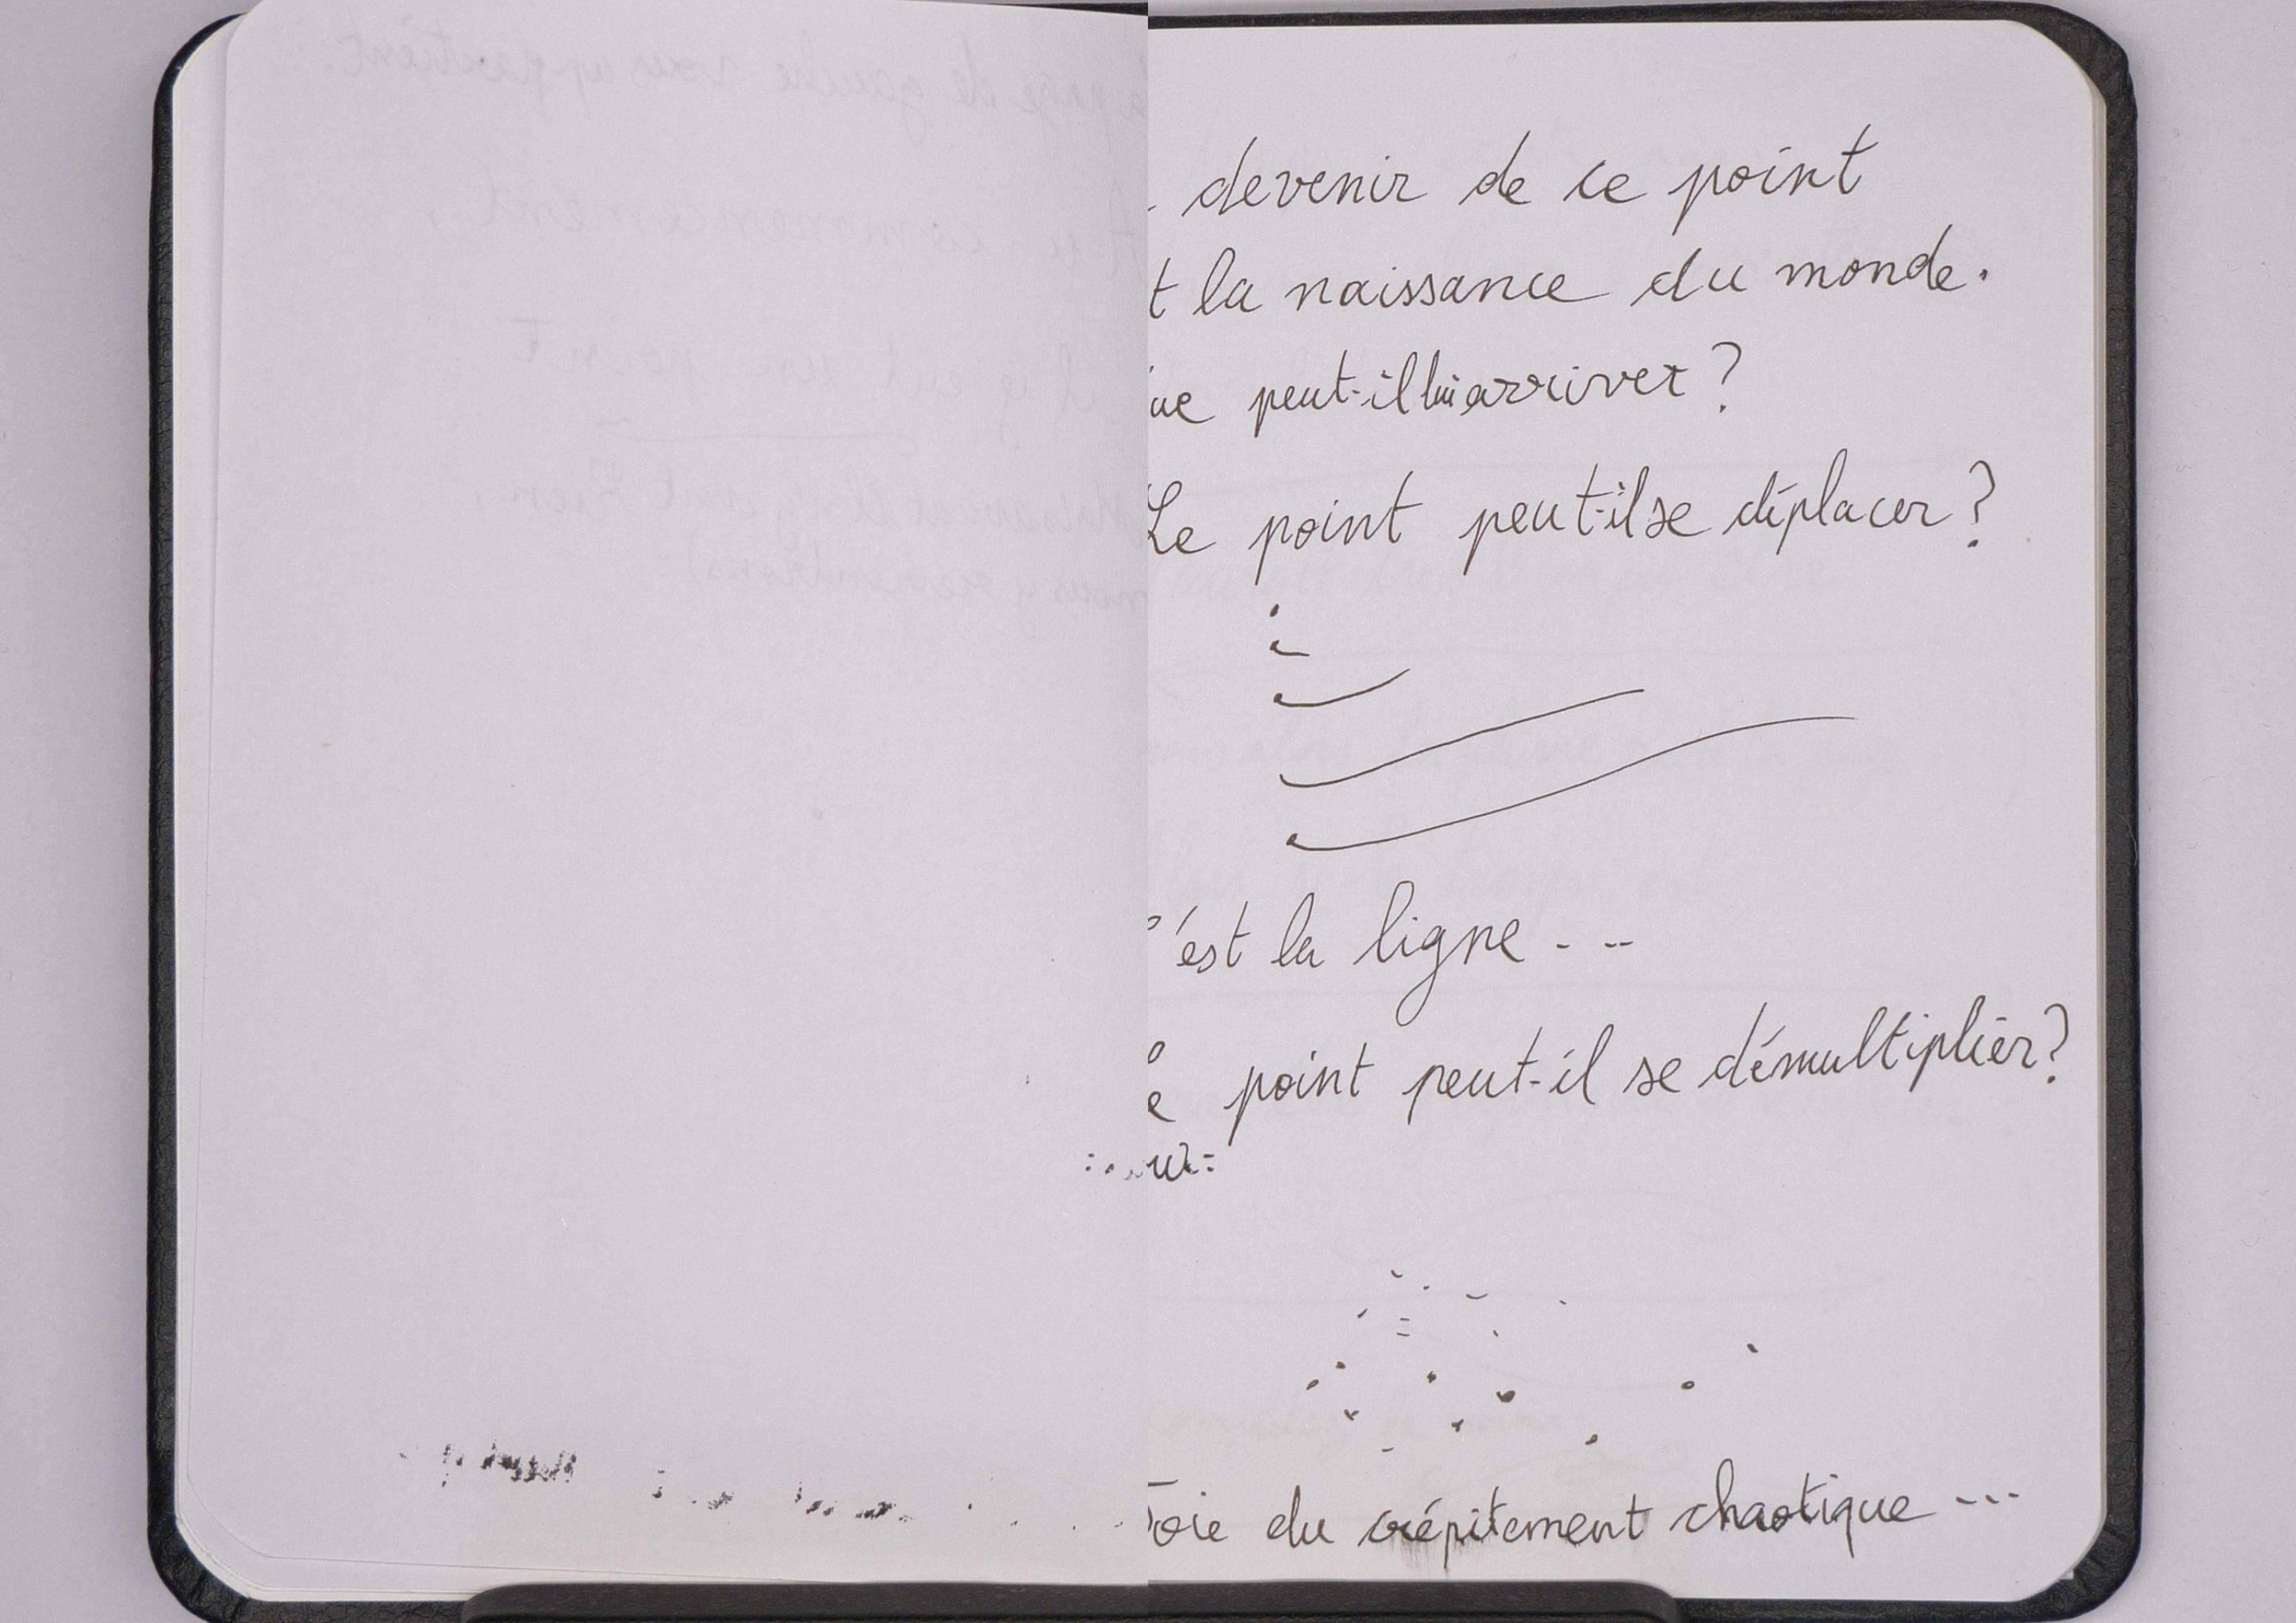 devenir de ce point
t la naissance du monde.
ue peut-il lui arriver?
Le point peut-il se déplacer?
'est la ligne...
e point peut-il se démultiplier?
oie du crépitement chaotique...